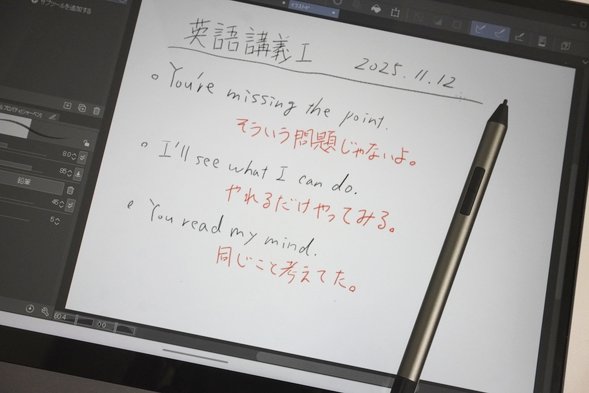 サブツールを追加する
英語講義I 2025.11.12
You're missing the point.
そういう問題じゃないよ。
I'll see what I can do.
やれるだけやってみる。
You read my mind.
同じこと考えてた。
鉛筆